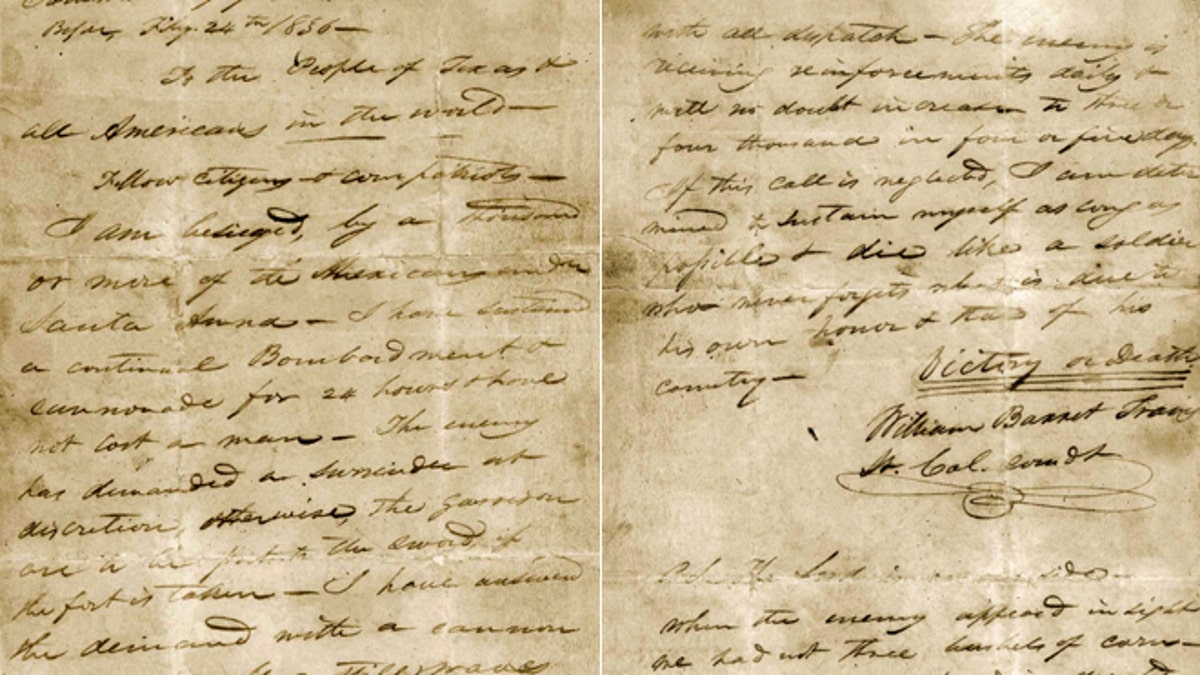 Bejar, Feby. 24th 1836—
To the People of Texas &
all Americans in the world—
Fellow Citizens & compatriots—
I am besieged, by a thousand
or more of the Mexicans under
Santa Anna — I have sustained
a continual Bombardment &
cannonade for 24 hours & have
not lost a man — The enemy
has demanded a surrender at
discretion, otherwise, the garrison
are to be put to the sword, if
the fort is taken — I have answered
the demand with a cannon
with all dispatch — The enemy is
receiving reinforcements daily &
will no doubt increase to three or
four thousand in four or five days.
If this call is neglected, I am deter
mined to sustain myself as long as
possible & die like a soldier
who never forgets what is due to
his own honor & that of his
country—
Victory or Death
William Barret Travis
Lt. Col. comdt
P.S. The Lord is on our side—
when the enemy appeared in sight
we had not three bushels of corn—